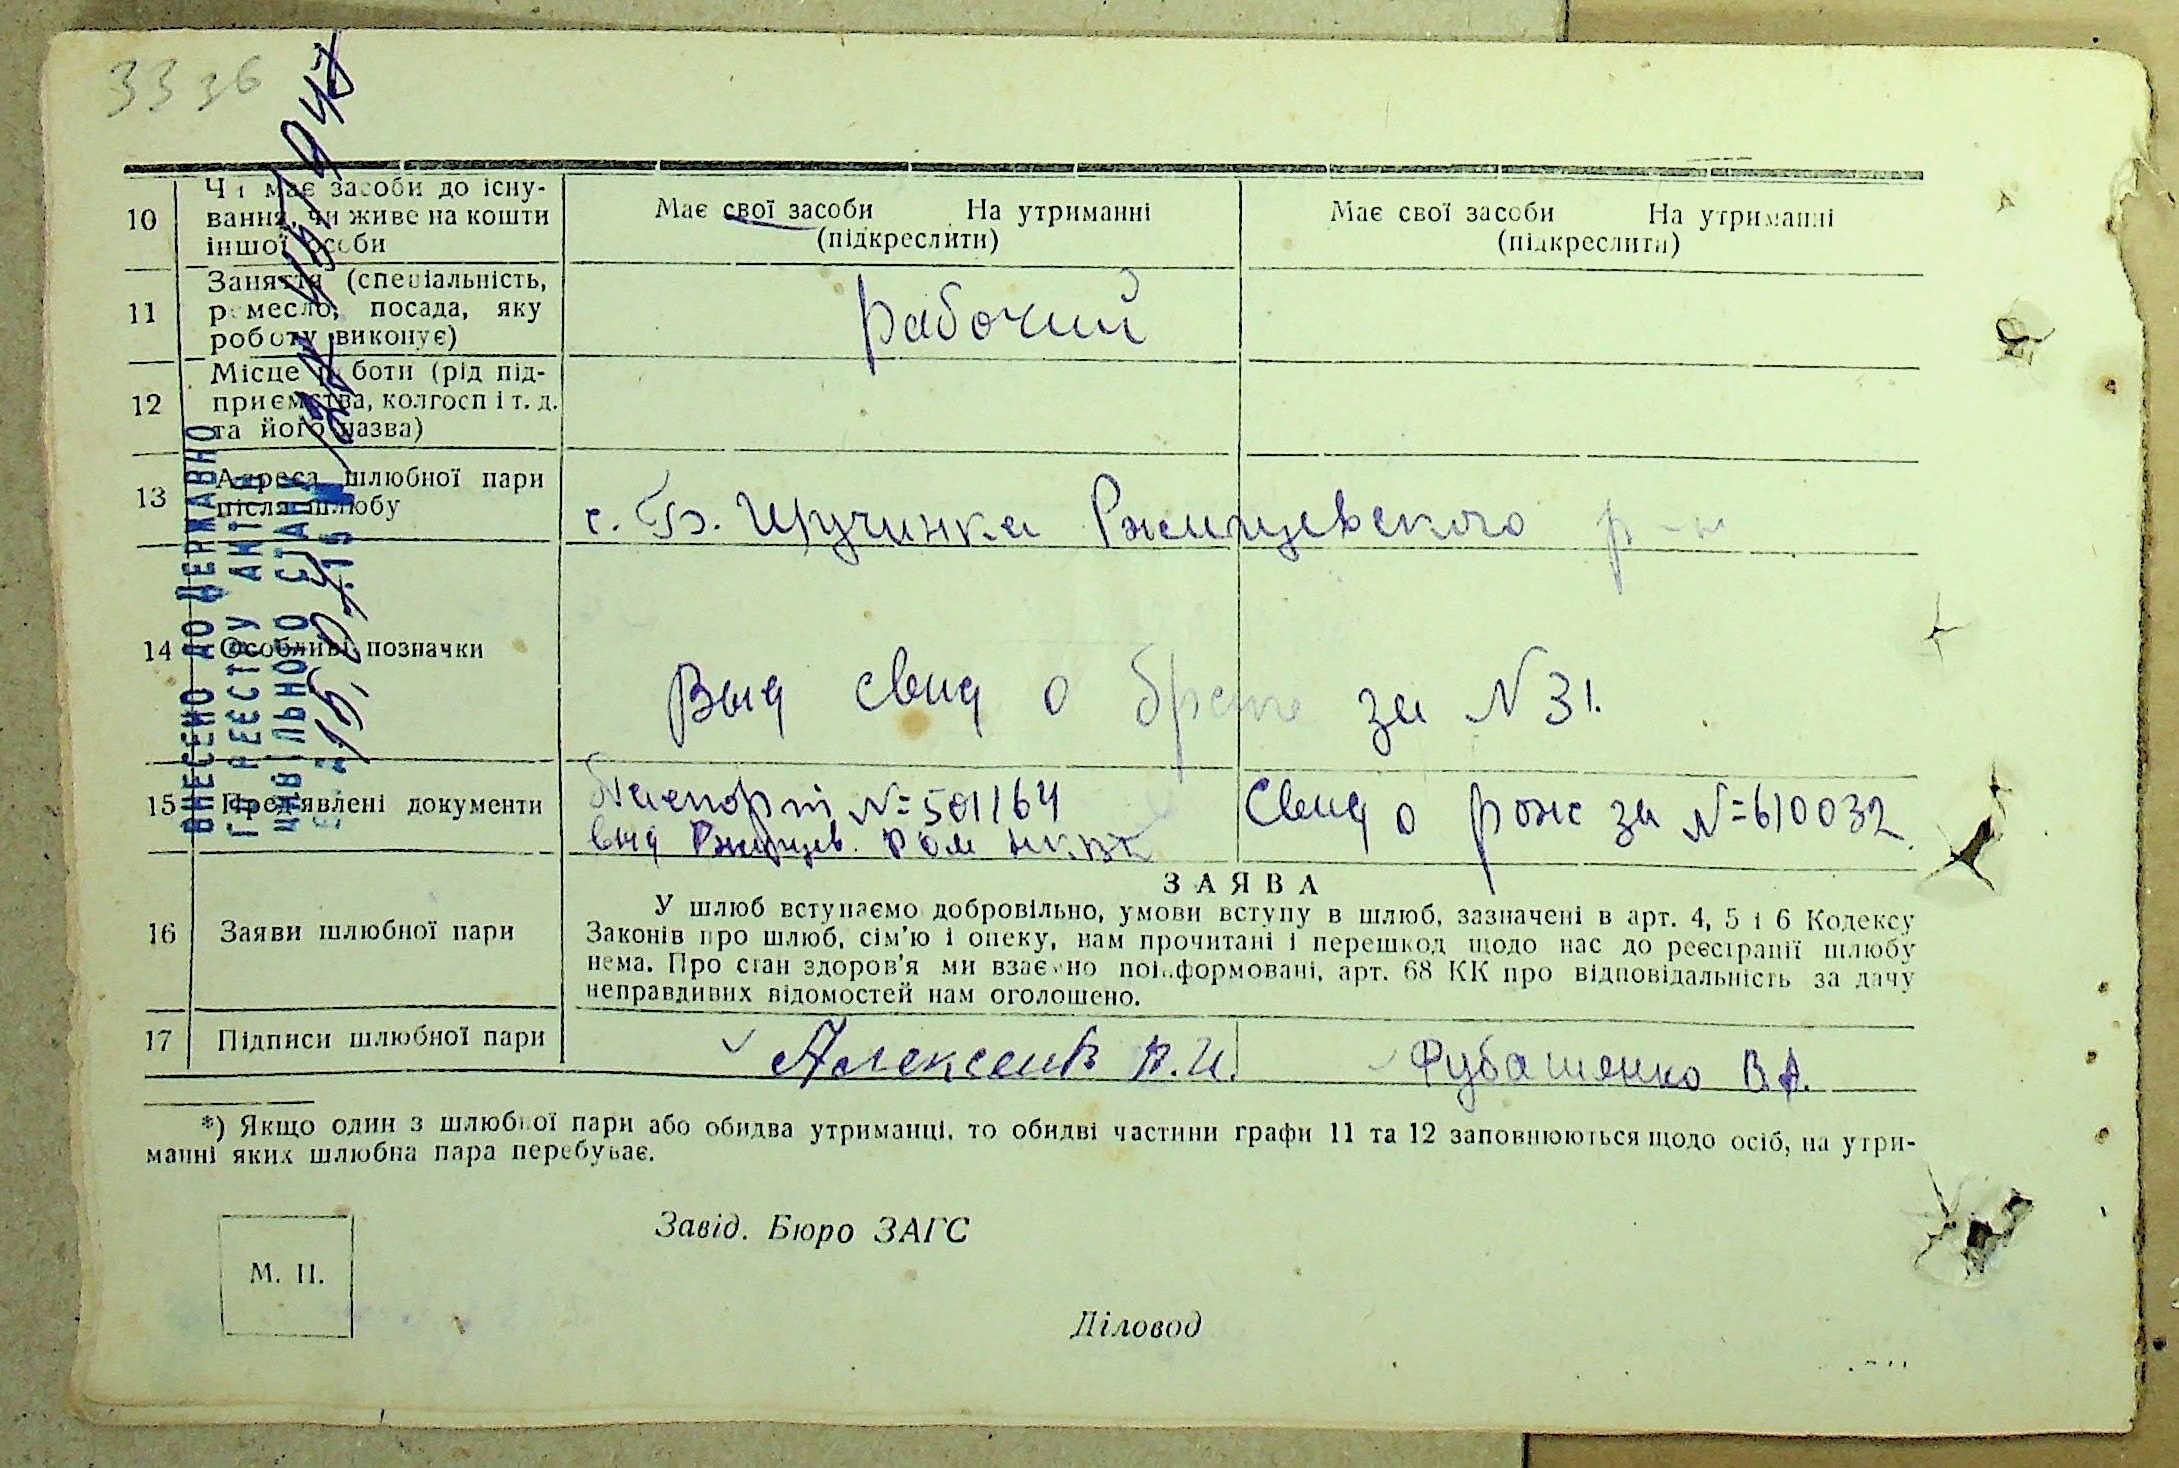 33 зб
10
Чи має засоби до існу-
вання, чи живе на кошти
іншої особи
Має свої засоби На утриманні
(підкреслити)
Має свої засоби На утриманні
(підкреслити)
11
Заняття (спеціальність,
ремесло, посада, яку
роботу виконує)
рабочий
12
Місце роботи (рід під-
приємства, колгосп і т. д.
та його назва)
13
Адреса шлюбної пари
після шлюбу
с. Б. Ржищевского р-н
14
Особливі позначки
Выд свид о браке за № 31.
15
Пред'явлені документи
Паспорт №=501164
выд Ржищев. РОМ НКВД
Свид о рож за №=610032
16
Заяви шлюбної пари
ЗАЯВА
У шлюб вступаємо добровільно, умови вступу в шлюб, зазначені в арт. 4, 5 і 6 Кодексу
Законів про шлюб, сім'ю і опеку, нам прочитані і перешкод щодо нас до реєстрації шлюбу
нема. Про стан здоров'я ми взаємно поінформовані, арт. 68 КК про відповідальність за дачу
неправдивих відомостей нам оголошено.
17
Підписи шлюбної пари
Алексеив В.И.
Рубашенко В.А.
*) Якщо один з шлюбної пари або обидва утриманці, то обидві частини графи 11 та 12 заповнюються щодо осіб, на утри-
манні яких шлюбна пара перебуває.
Завід. Бюро ЗАГС
М. П.
Діловод
ВНЕСЕНО ДО ДЕРЖАВНО
ГО РЕЄСТРУ АКТІВ
ЦИВІЛЬНОГО СТАНУ